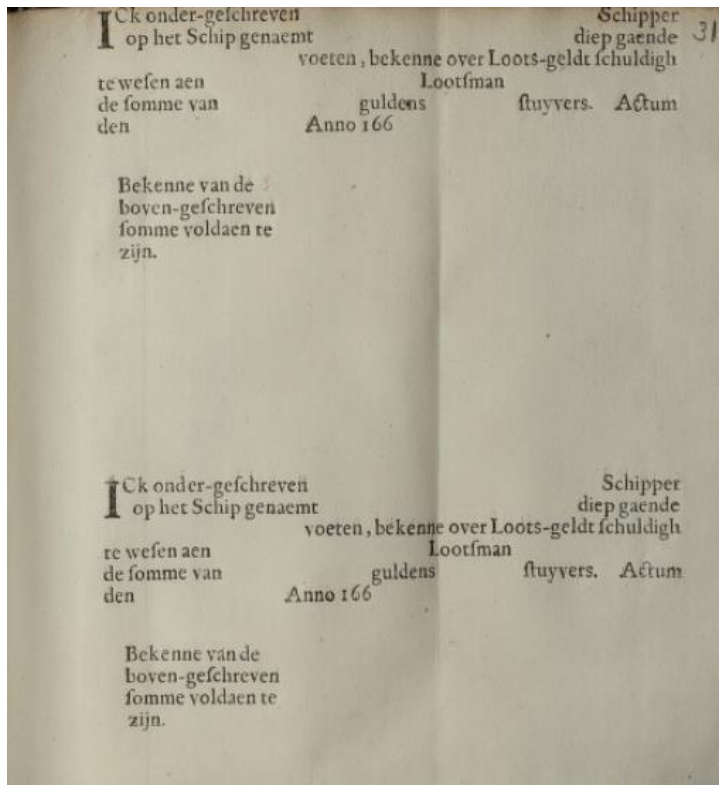 ICk onder-geſchreven Schipper 31
op het Schip genaemt diep gaende
voeten, bekenne over Loots-geldt ſchuldigh
te weſen aen Lootſman
de ſomme van guldens ſtuyvers. Actum
den Anno 166
Bekenne van de
boven-geſchreven
ſomme voldaen te
zijn.
ICk onder-geſchreven Schipper
op het Schip genaemt diep gaende
voeten, bekenne over Loots-geldt ſchuldigh
te weſen aen Lootſman
de ſomme van guldens ſtuyvers. Actum
den Anno 166
Bekenne van de
boven-geſchreven
ſomme voldaen te
zijn.